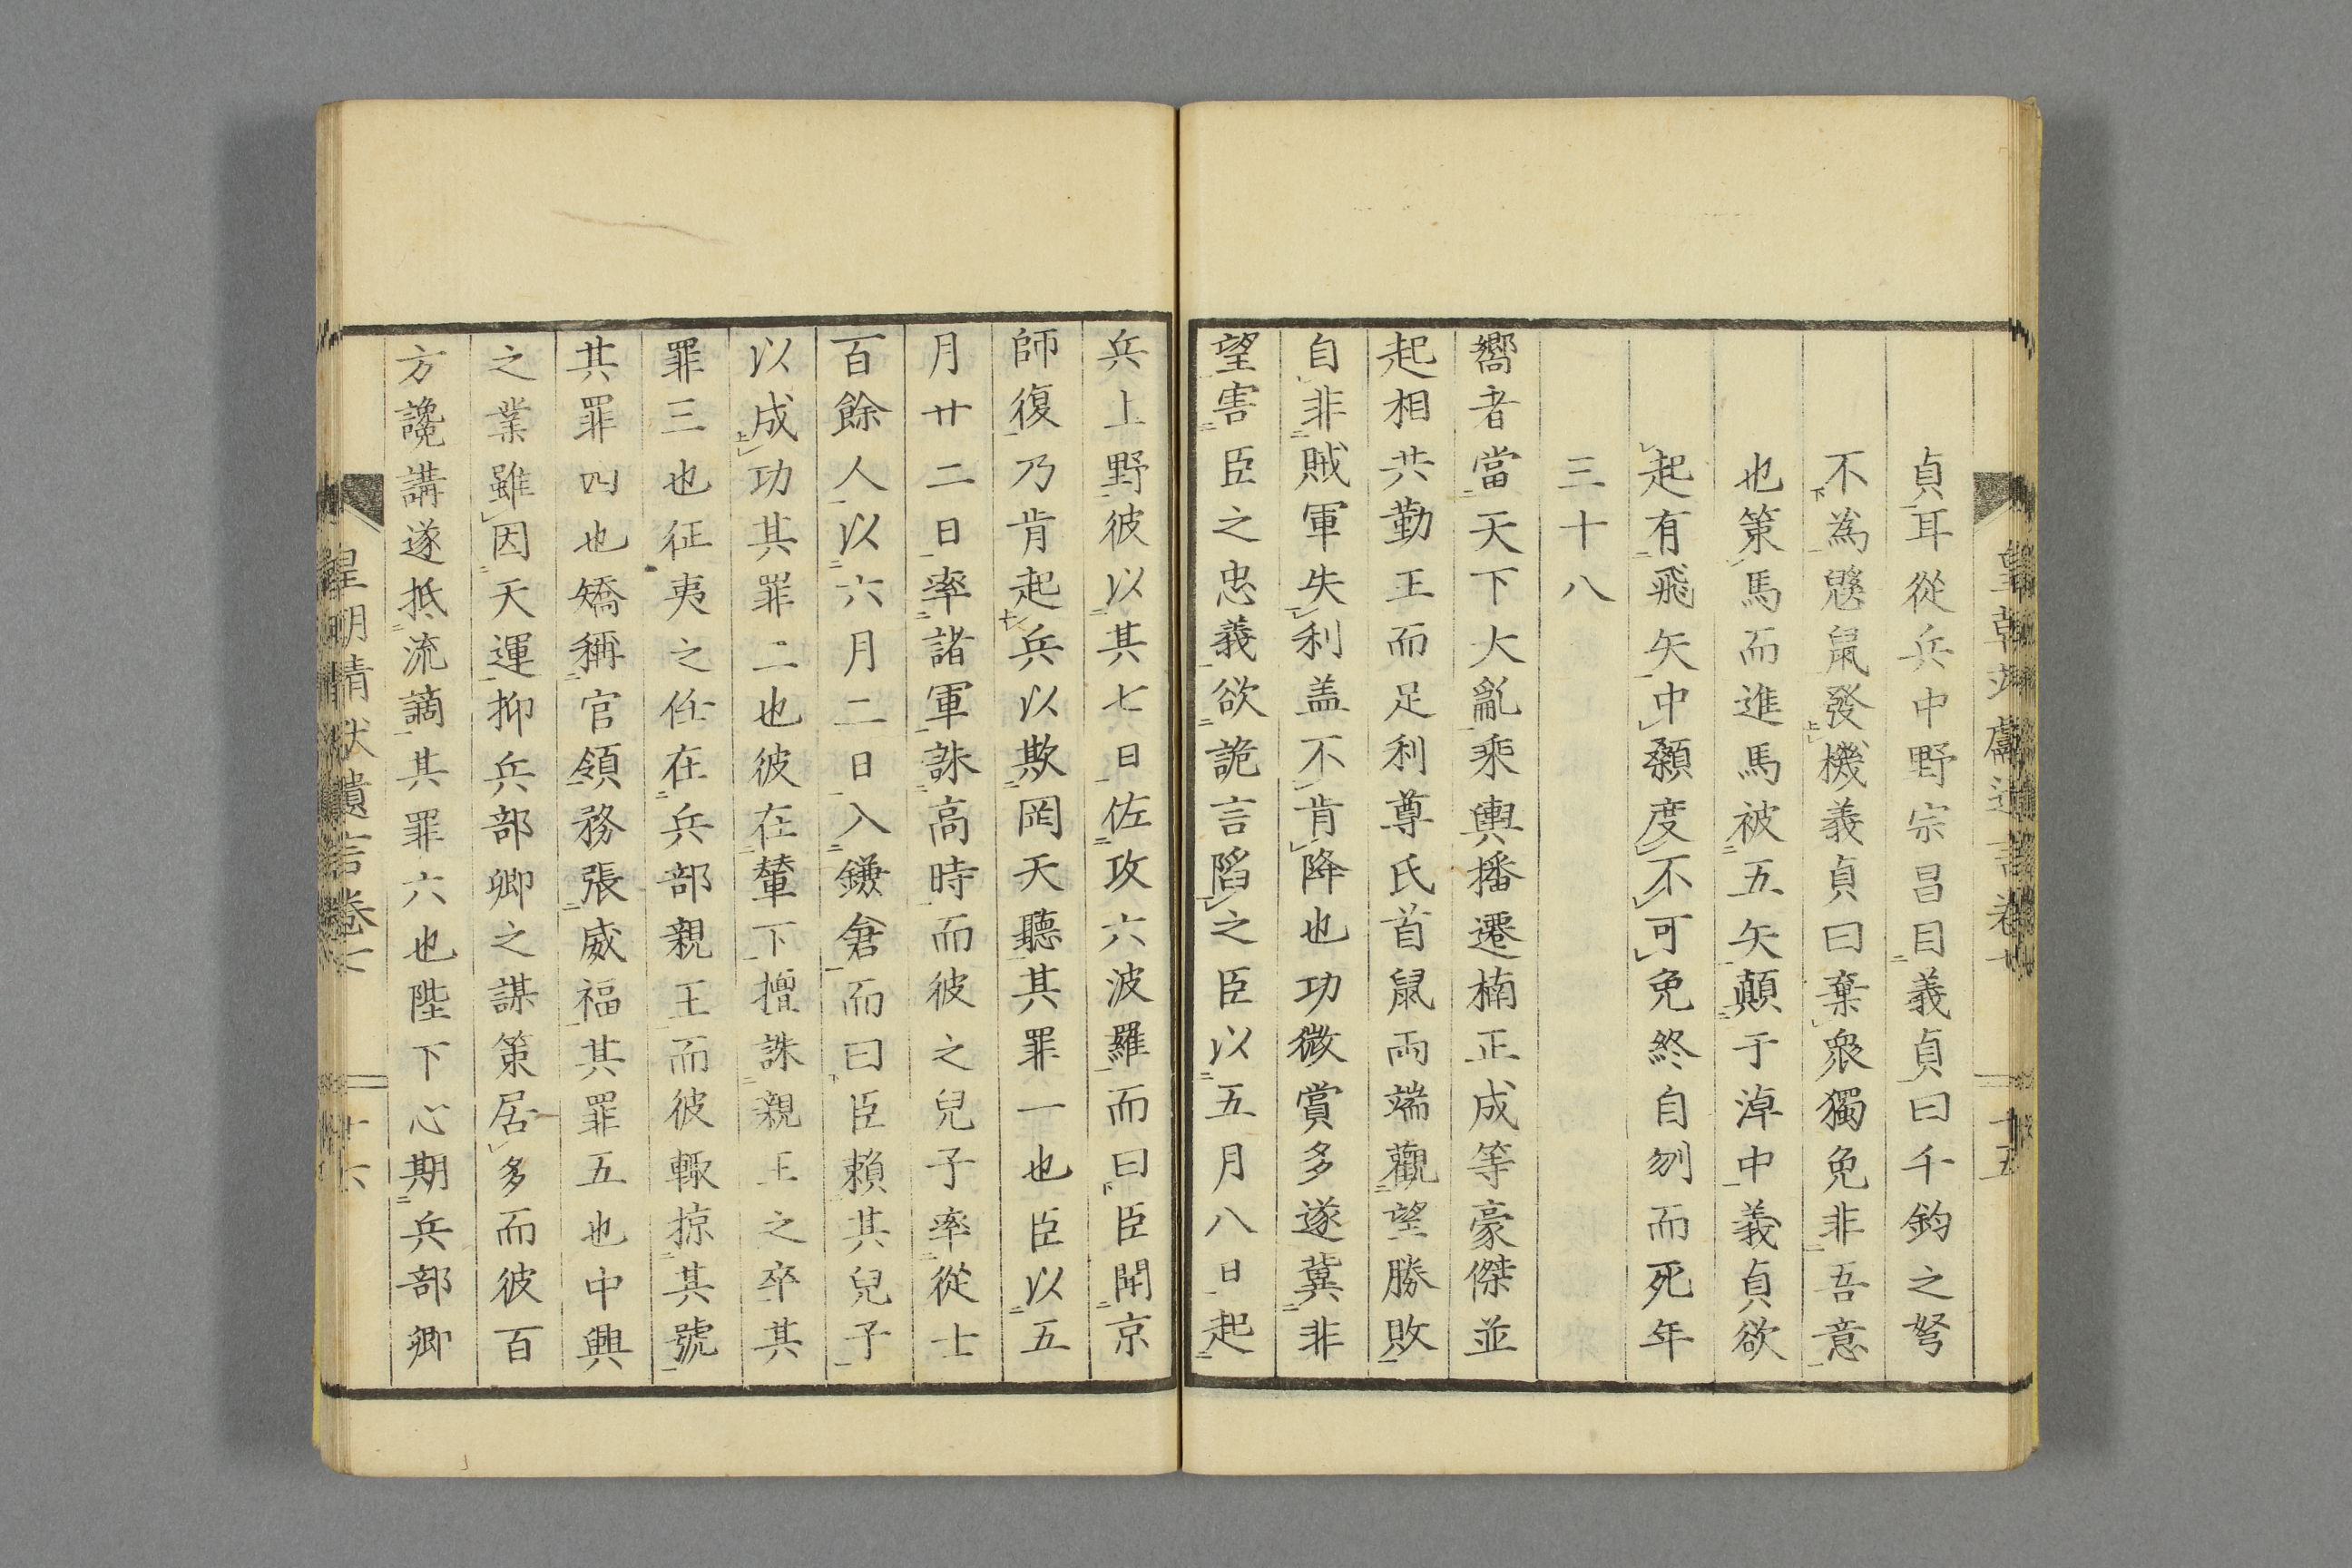 貞耳從兵中野宗昌目義貞曰千鈞之弩
不為鼷鼠發機義貞曰棄衆獨免非吾意
也策馬而進馬被五矢顛于淖中義貞欲
起有飛矢中顙度不可免終自刎而死年
三十八
嚮者當天下大亂乘輿播遷楠正成等豪傑並
起相共勤王而足利尊氏首鼠兩端觀望勝敗
自非賊軍失利盖不肯降也功微賞多遂冀非
望害臣之忠義欲詭言陷之臣以五月八日起
兵上野彼以其七日佐攻六波羅而曰臣聞京
師復乃肯起兵以欺罔天聽其罪一也臣以五
月廿二日率諸軍誅高時而彼之兒子率從士
百餘人以六月二日入鎌倉而曰臣賴其兒子
以成功其罪二也彼在輦下擅誅親王之卒其
罪三也征夷之任在兵部親王而彼輙掠其號
其罪四也矯稱官領務張威福其罪五也中興
之業雖因天運抑兵部卿之謀策居多而彼百
方讒講遂抵流謫其罪六也陛下心期兵部卿